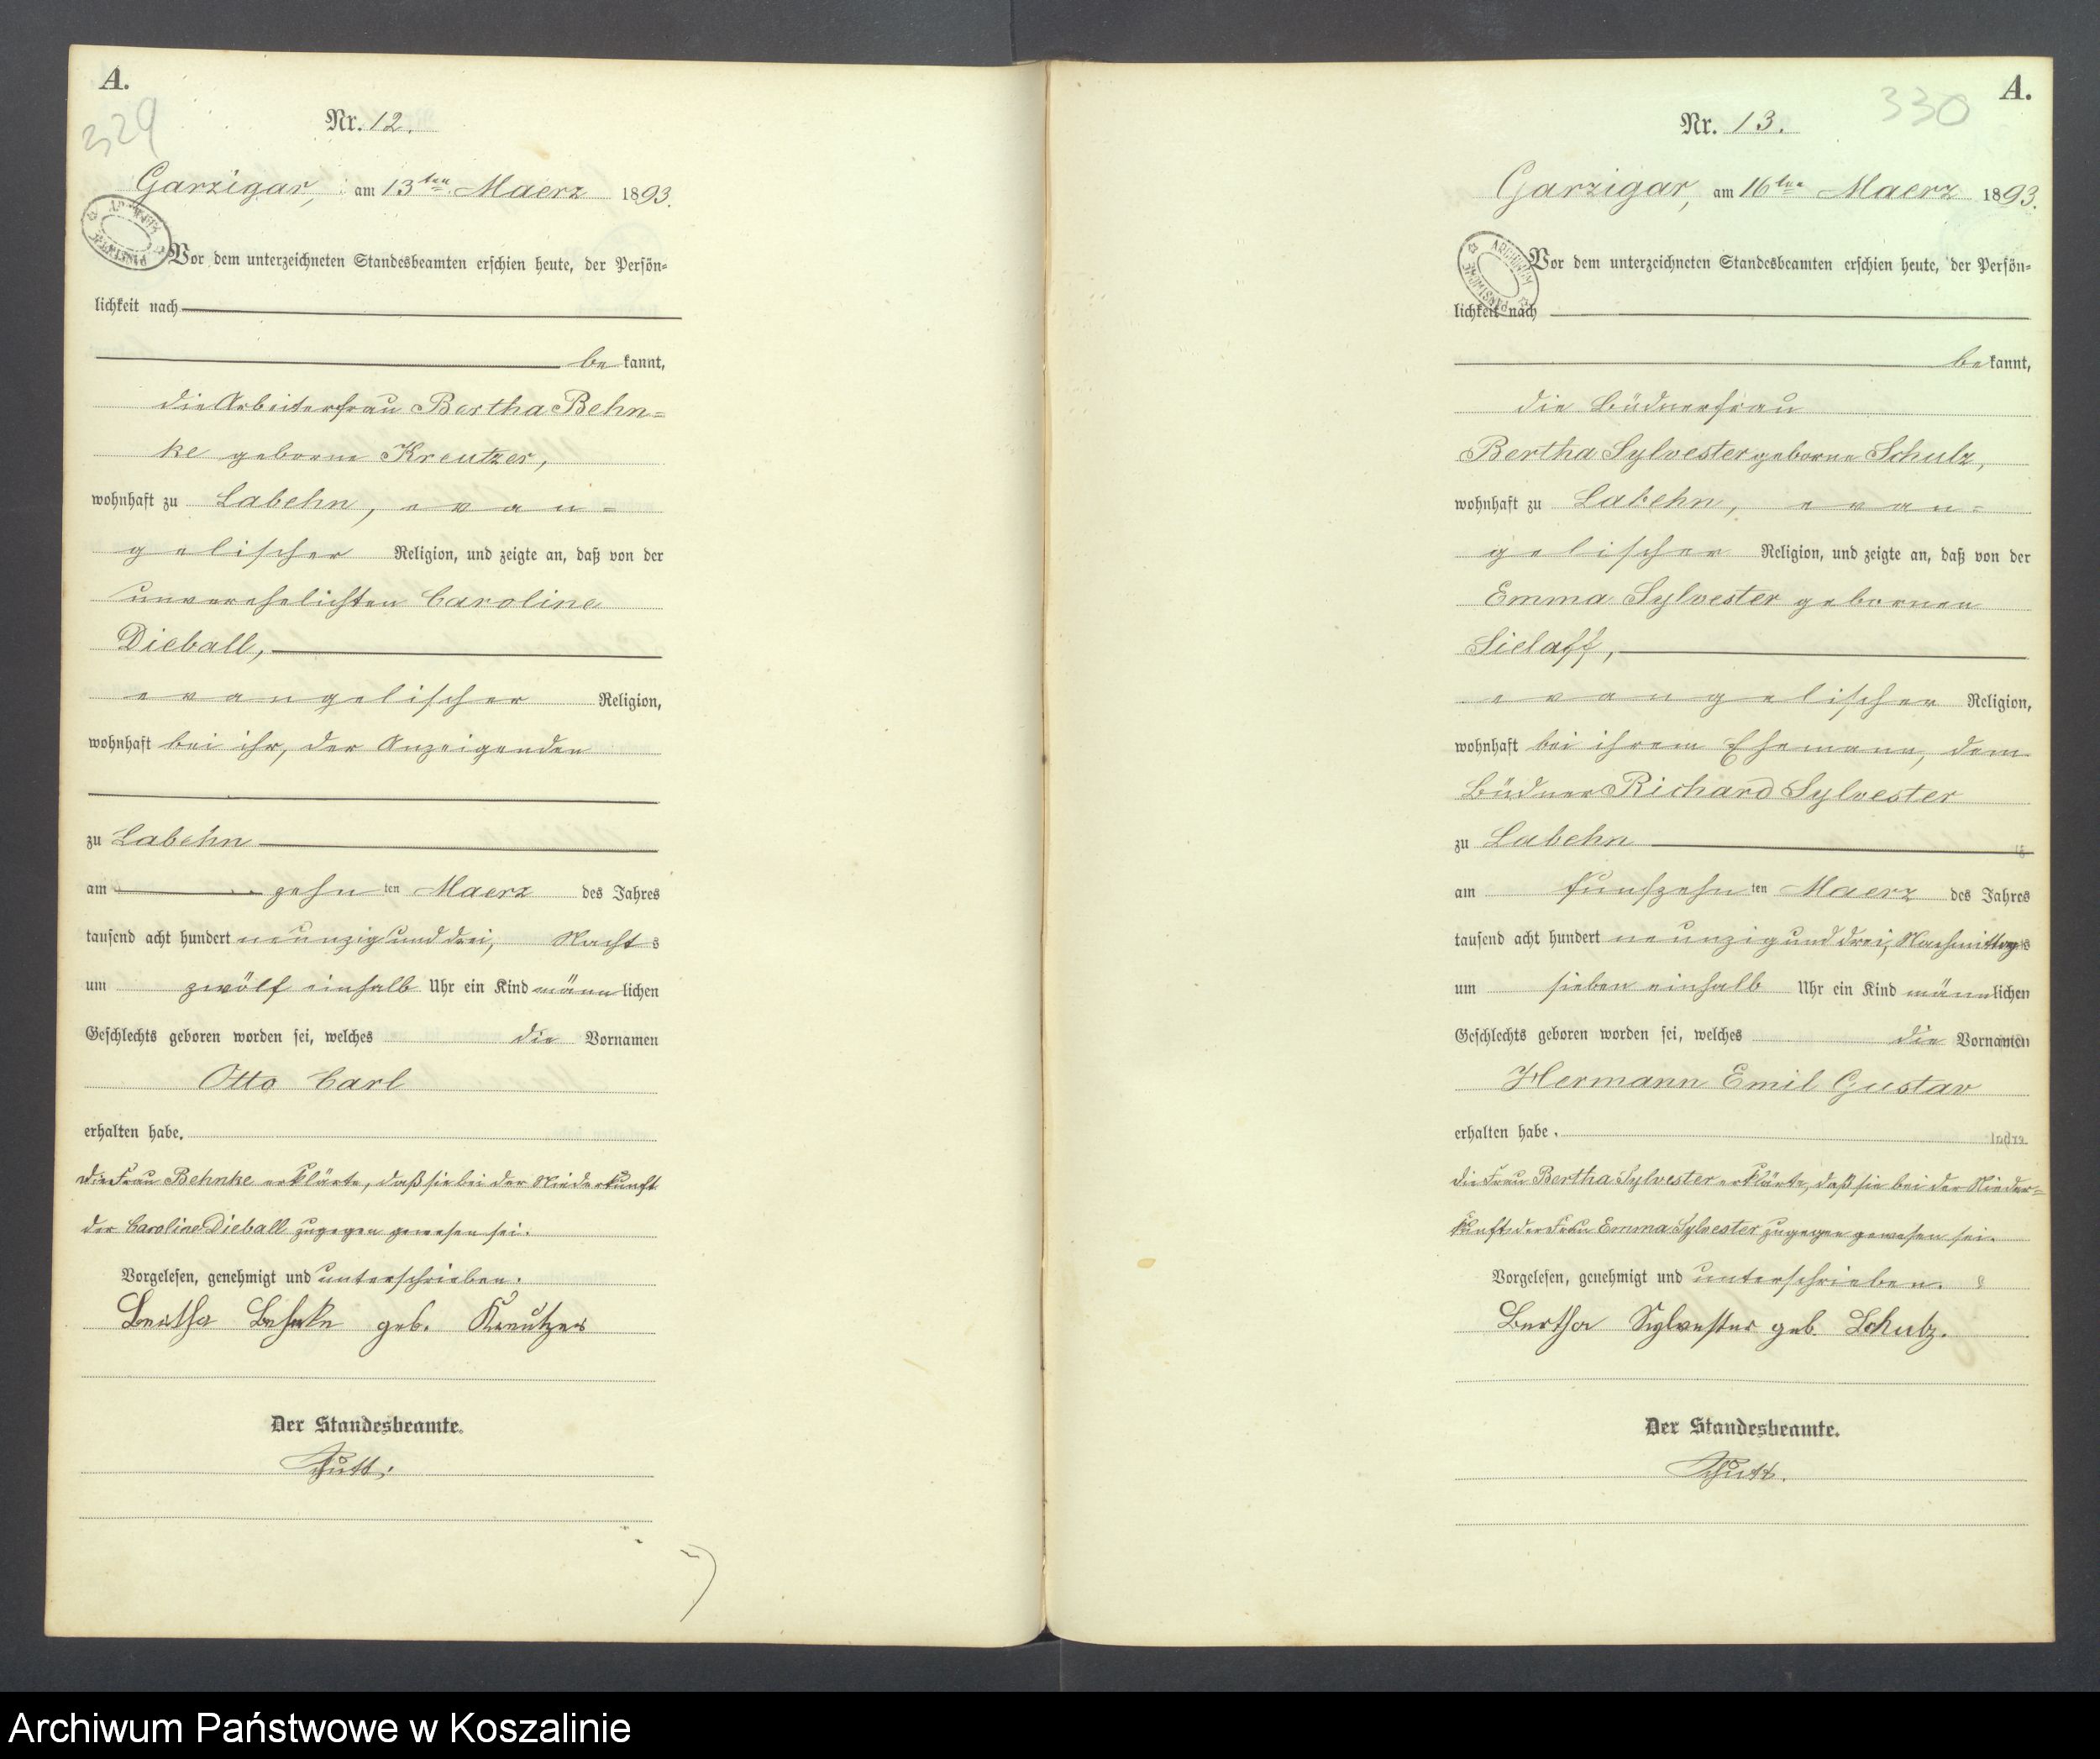 A.
329
Nr. 12.
Garzigar, am 13ten Maerz 1893.
Vor dem unterzeichneten Standesbeamten erschien heute, der Persön=
lichkeit nach
bekannt,
die Arbeiterfrau Bertha Behn=
ke geborne Kreutzer,
wohnhaft zu Labehn, evan=
gelischer Religion, und zeigte an, daß von der
unverehelichten Caroline
Dieball,
evangelischer Religion,
wohnhaft bei ihr, der Anzeigenden
zu Labehn
am zehn ten Maerz des Jahres
tausend acht hundert neunzig und drei, Nachts
um zwölf einhalb Uhr ein Kind männlichen
Geschlechts geboren worden sei, welches die Vornamen
Otto Carl
erhalten habe.
Die Frau Behnke erklärte, daß sie bei der Niederkunft
der Caroline Dieball zugegen gewesen sei.
Vorgelesen, genehmigt und unterschrieben.
Bertha Behnke geb. Kreutzer
Der Standesbeamte.
A.
330
Nr. 13.
Garzigar, am 16ten Maerz 1893.
ARCHIWUM PAŃSTWOWE
Vor dem unterzeichneten Standesbeamten erschien heute, der Persön=
lichkeit nach
bekannt,
die Büdnerfrau
Bertha Sylvester geborne Schulz,
wohnhaft zu Labehn, evan=
gelischer Religion, und zeigte an, daß von der
Emma Sylvester gebornen
Sielaff,
evangelischer Religion,
wohnhaft bei ihrem Ehemann, dem
Büdner Richard Sylvester
zu Labehn
am funfzehn ten Maerz des Jahres
tausend acht hundert neunzig und drei, Nachmittags
um sieben einhalb Uhr ein Kind männlichen
Geschlechts geboren worden sei, welches die Vornamen
Hermann Emil Gustav
erhalten habe.
Die Frau Bertha Sylvester erklärte, daß sie bei der Nieder=
kunft der Frau Emma Sylvester zugegen gewesen sei.
Vorgelesen, genehmigt und unterschrieben.
Bertha Sylvester geb. Schulz.
Der Standesbeamte.
Archiwum Państwowe w Koszalinie